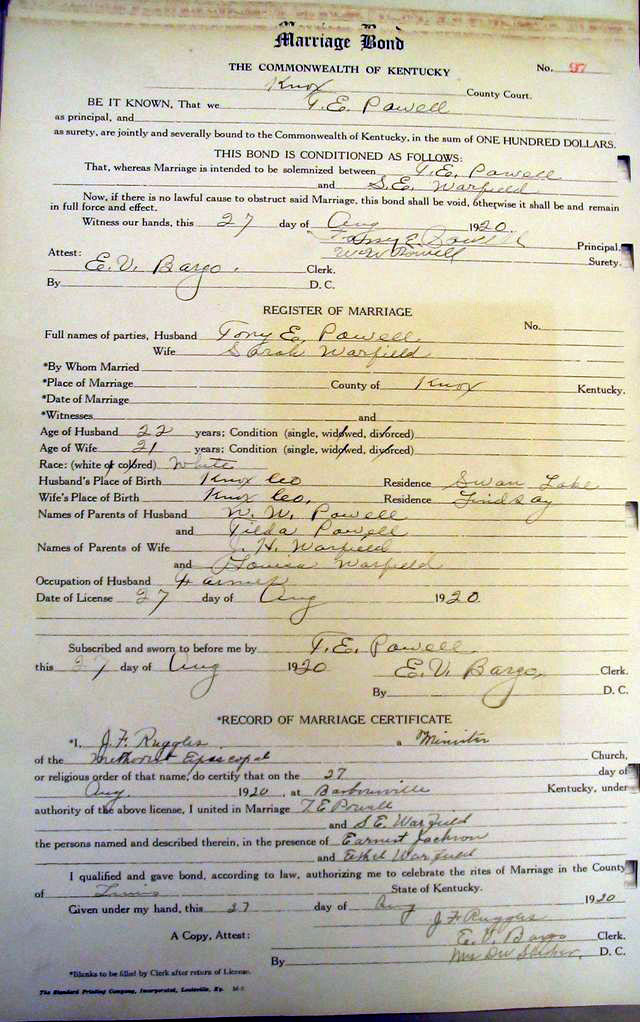 Marriage Bond
THE COMMONWEALTH OF KENTUCKY No. 97
Knox County Court.
BE IT KNOWN, That we T. E. Powell
as principal, and
as surety, are jointly and severally bound to the Commonwealth of Kentucky, in the sum of ONE HUNDRED DOLLARS.
THIS BOND IS CONDITIONED AS FOLLOWS:
That, whereas Marriage is intended to be solemnized between T. E. Powell
and S. E. Warfield
Now, if there is no lawful cause to obstruct said Marriage, this bond shall be void, otherwise it shall be and remain
in full force and effect.
Witness our hands, this 27 day of Aug 1920.
Tony E. Powell Principal.
Attest: W. W. Powell Surety.
E. V. Bargo. Clerk.
By D. C.
REGISTER OF MARRIAGE
Full names of parties, Husband Tony E. Powell No.
Wife Sarah Warfield
*By Whom Married
*Place of Marriage County of Knox Kentucky.
*Date of Marriage
*Witnesses and
Age of Husband 22 years; Condition (single, widowed, divorced)
Age of Wife 21 years; Condition (single, widowed, divorced)
Race: (white or colored) White
Husband's Place of Birth Knox Co Residence Swan Lake
Wife's Place of Birth Knox Co. Residence Lindsay
Names of Parents of Husband W. W. Powell
and Tilda Powell
Names of Parents of Wife J. H. Warfield
and Louisa Warfield
Occupation of Husband Farmer
Date of License 27 day of Aug 1920.
Subscribed and sworn to before me by T. E. Powell
this 27 day of Aug 1920 E. V. Bargo, Clerk.
By D. C.
*RECORD OF MARRIAGE CERTIFICATE
*I, J. F. Ruggles a Minister
of the Methodist Episcopal Church,
or religious order of that name, do certify that on the 27 day of
Aug. 1920, at Barbourville Kentucky, under
authority of the above license, I united in Marriage T. E Powell
and S. E. Warfield
the persons named and described therein, in the presence of Earnest Jackson
and Ethel Warfield
I qualified and gave bond, according to law, authorizing me to celebrate the rites of Marriage in the County
of State of Kentucky.
Given under my hand, this 27 day of Aug 1920
J. F. Ruggles
A Copy, Attest: E. V. Bargo Clerk.
By D. C.
*Blanks to be filled by Clerk after return of License.
The Standard Printing Company, Incorporated, Louisville, Ky.